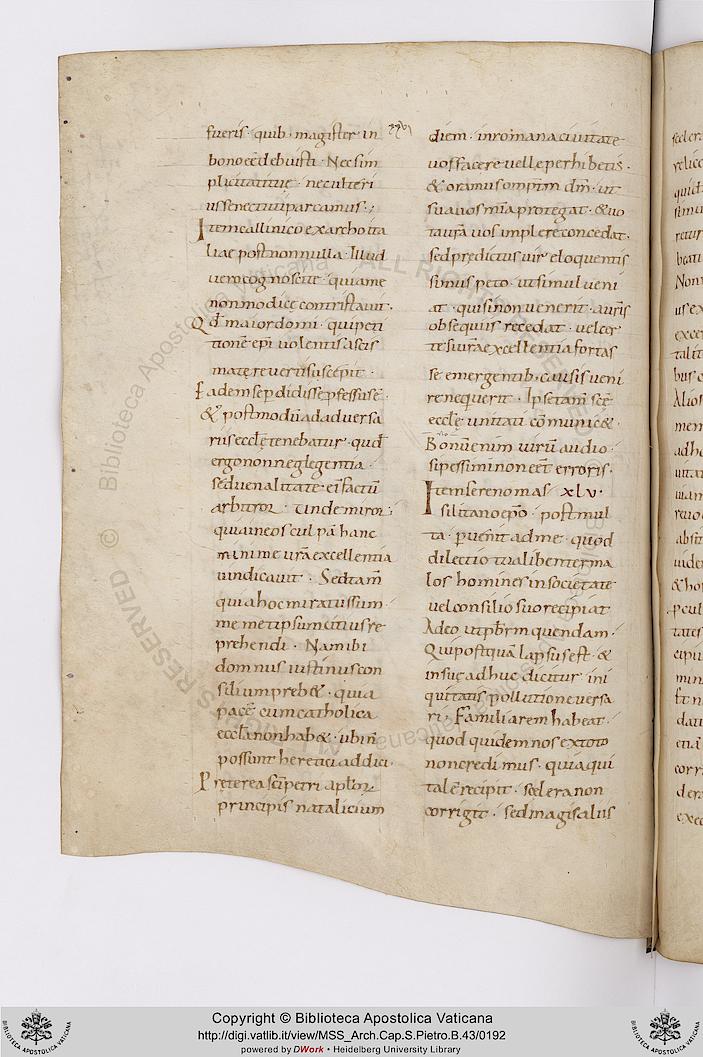 fueris · quib· magister in
bono eē debuisti · Nec sim
plicitati tuę · nec ulteri
us senectuti parcamus ·,
Item callinico exarcho ita
liae post nonnulla · Illud
uero cognoscite · quia me
non modice contristauit ·
Qd̄ maiordomi · qui peti
tionē ep̄i uolentis ascis
mate reuerti suscepit ·
Eadem se pdidisse pfessus ē ·
& postmodū ad aduersa
riis ecclę tenebatur · quod
ergo non neglegentia ·
sed uenalitate eī factū
arbitror · Unde miror ;
quia in eos culpā hanc
minime ur̄a excellentia
uindicauit · Sed tam̄
quia hoc miratus sum
memetipsum citius re
prehendi · Nam ibi
domnus iustinus con
silium preb& · quia
pacē cum catholica
eccl̄a non hab& · ubi n̄
possunt heretici addici ·
Preterea sc̄i petri aplor̄
principis natalicium
diem · in romana ciuitate
uos facere uelle perhibetis ·
& oramus omp̄tm dm̄ · ut
sua uos mīa protegat · & uo
ta ur̄a uos implere concedat ·
sed predictus uir eloquentis
simus peto · ut simul ueni
at · qui si non uenerit · aur̄is
obsequiis recedat · uel cer
te si ur̄a excellentia fortas
se emergentib · causis ueni
re nequerit · Ipse tam̄ scē
ecclę unitati cōmunic& ·
Bonū enim uirū audio ·
si pessimi non eēt erroris ·
Item sereno mas xlv ·
silitano ep̄o · post mul
ta · puenit ad me · quod
dilectio tua libenter ma
los homines in societate
uel consilio suo recipiat
Adeo ut pb̄rm quendam ·
Qui postquā lapsus est · &
in suę adhuc dicitur ini
quitatis pollutione uersa
ri · Familiarem habeat ·
quod quidem nos ex toto
non credimus · quia qui
talē recipit · scelera non
corrigit · sed magis aliis
Copyright © Biblioteca Apostolica Vaticana
http://digi.vatlib.it/view/MSS_Arch.Cap.S.Pietro.B.43/0192
powered by DWork • Heidelberg University Library